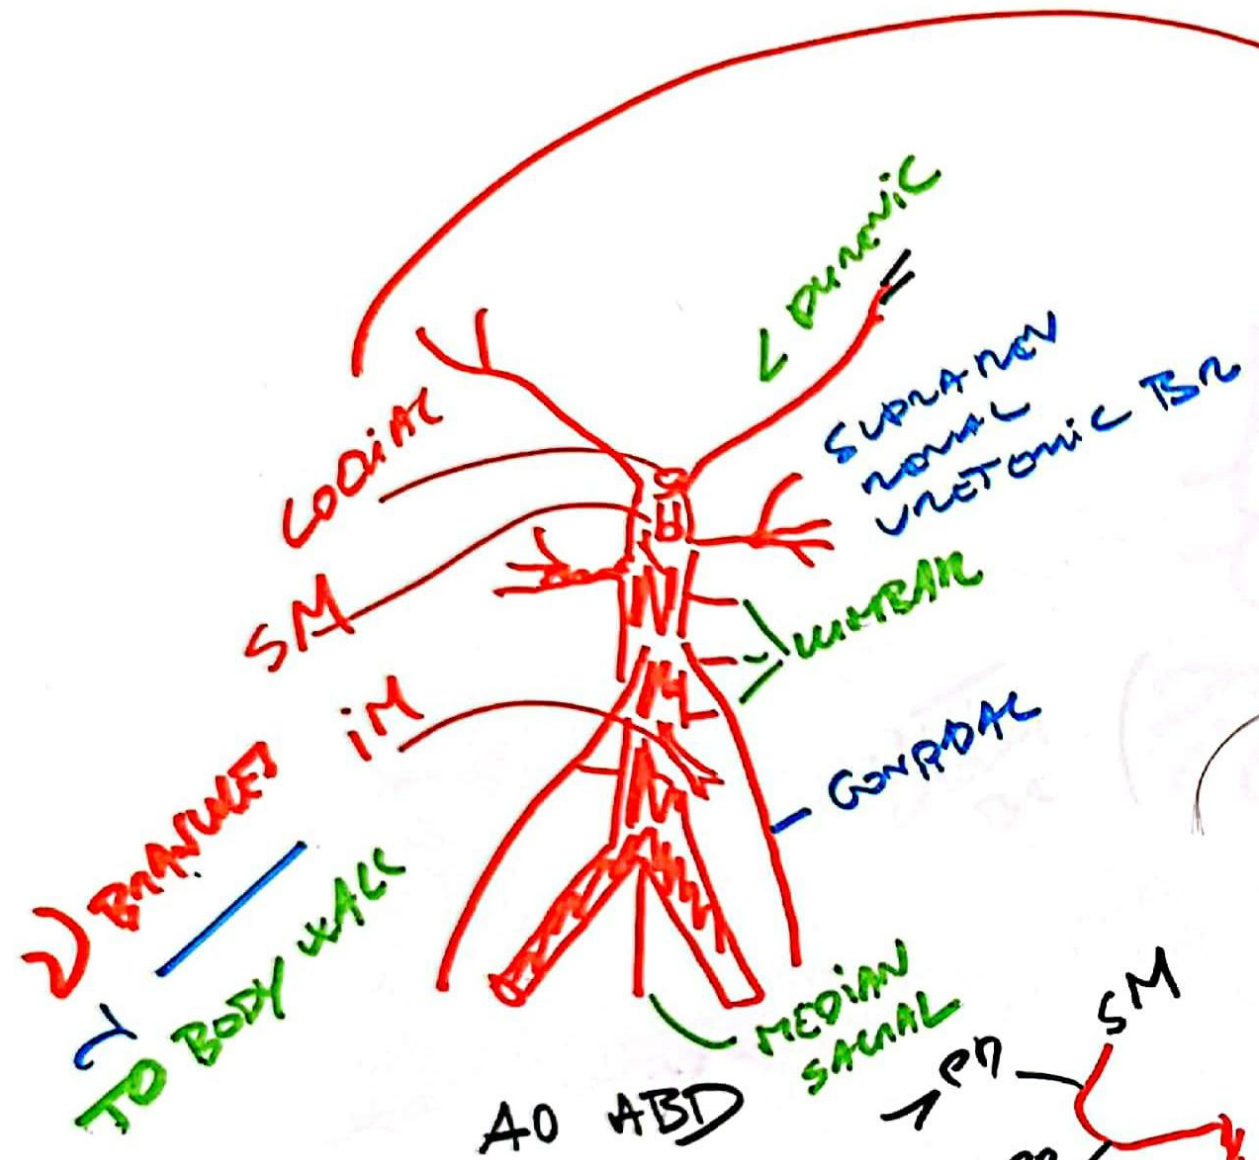 L PHRENIC
SUPRAREN
RENAL
URETERIC BR
COELIAC
LUMBAR
SM
iM
GONADAL
BRANCHES
TO BODY WALL
MEDIAN
SACRAL
SM
AO ABD